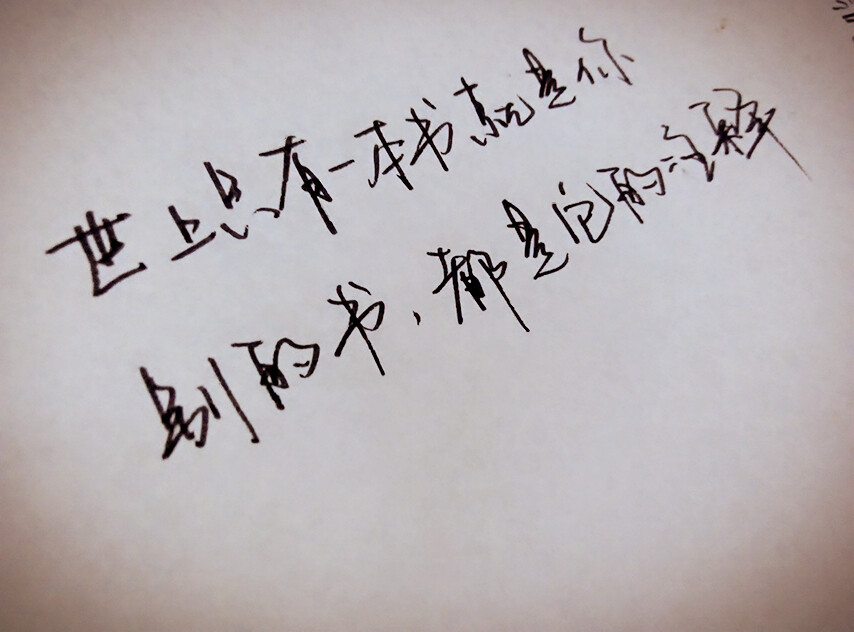 世上只有一本书就是你
别的书、都是它的注释